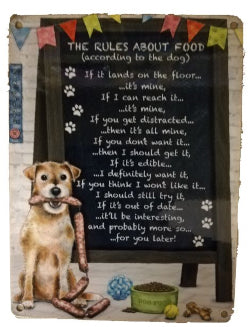 THE RULES ABOUT FOOD
(according to the dog)
If it lands on the floor...
...it's mine,
If I can reach it...
...it's mine,
If you get distracted...
...then it's all mine,
If you don't want it...
...then I should get it,
If it's edible...
...I definitely want it,
If you think I won't like it...
I should still try it,
If it's out of date...
...it'll be interesting,
and probably more so...
...for you later!
DOG FOOD